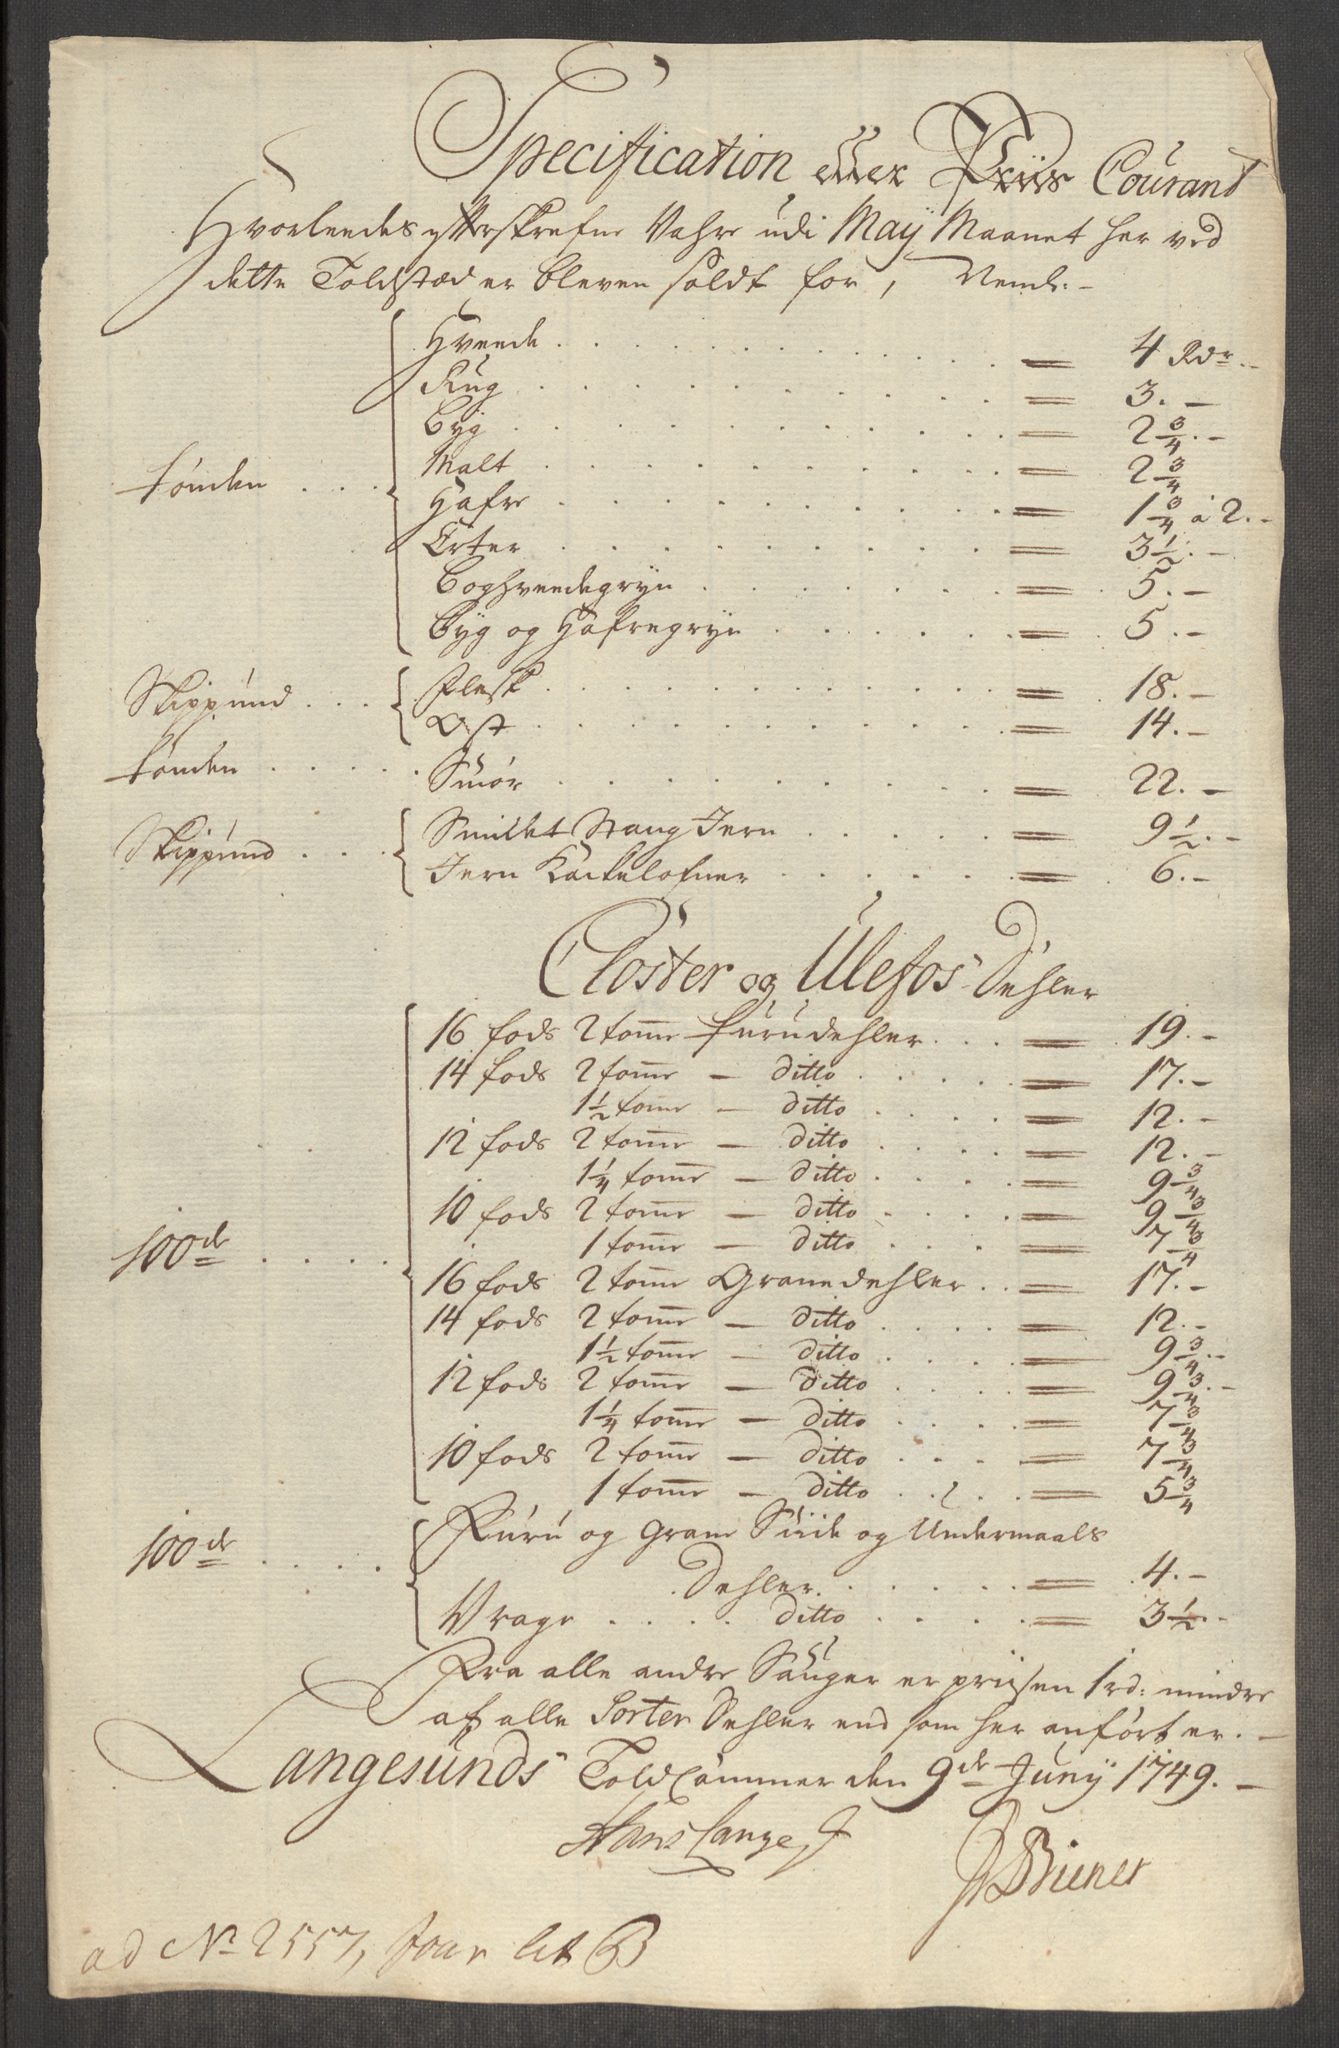 Specification eller Priis Courant
Hvorleedes ytterskrefne Vahre udi Maÿ Maanet her ved
dette Toldstæd er bleven soldt for, Neml:
Tønden . . . Hveede . . . = 4 Rdr. -
Rug . . . = 3. -
Byg . . . = 2 3/4. -
Malt . . . = 2 3/4
Hafre . . . = 1 3/4 a 2. -
Erter . . . = 3 1/2. -
Boghveedegryn . . . = 5. -
Byg og Hafregryn . . . = 5. -
Skippund . . . Flesk . . . = 18. -
Ost . . . = 14. -
Tønden . . . Smør . . . = 22. -
Skippund . . . Smidet Stang Jern . . . = 9 1/2. -
Jern Kackelofner . . . = 6. -
Closter og Ulefos Dehler
100de . . . 16 fods 2 tome furudehler . . . = 19. -
14 fods 2 tome - ditto . . . = 17. -
1 1/2 tome - ditto . . . = 12. -
12 fods 2 tome - ditto . . . = 12. -
1 1/4 tome - ditto . . . = 9 3/4
10 fods 2 tome - ditto . . . = 9 3/4
1 tome - ditto . . . = 7 3/4
16 fods 2 tome Granedehler . . = 17. -
14 fods 2 tome - ditto . . . = 12. -
1 1/2 tome - ditto . . . = 9 3/4. -
12 fods 2 tome - ditto . . . = 9 3/4. -
1 1/4 tome - ditto . . . = 7 3/4
10 fods 2 tome - ditto . . . = 7 3/4
1 tome - ditto . . . = 5 3/4
100de . . . Furu og Grane Siide og Undermaals
Dehler . . . = 4. -
Vrage . . . ditto . . . = 3 1/2. -
Fra alle andre Sauger er priisen 1 rd: mindre
af alle Sorter Dehler end som her anført er. -
Langesunds Toldcammer den 9de Junÿ 1749. -
Hans Lange
ad No 2557, Jour lit B